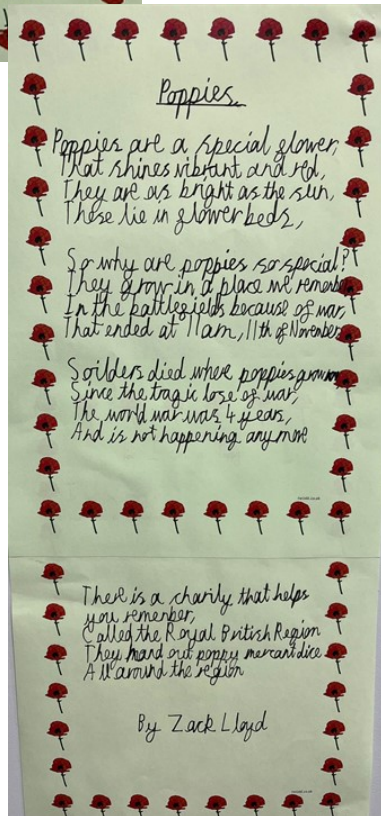 Poppies.
Poppies are a special flower,
That shines vibrant and red,
They are as bright as the sun,
These lie in flowerbeds,
So why are poppies so special?
They grow in a place we remember
In the battlefields because of war,
That ended at 11am, 11th of November
Soilders died where poppies grow
Since the tragic lose of war,
The world war was 4 years,
And is not happening anymore
There is a charity that helps
you remember,
Called the Royal British Region
They hand out poppy mercantdice
All around the region
By Zack Lloyd